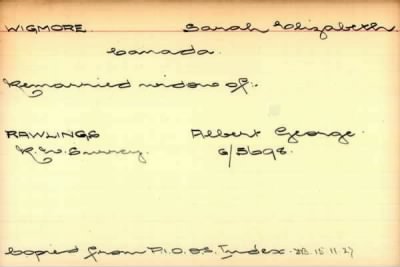 WIGMORE Sarah Elizabeth.
Canada.
Remarried widow of:-
RAWLINGS Albert George.
R.W. Surrey. G/5698.
Copied from P.I.O's. Index. 15.11.27